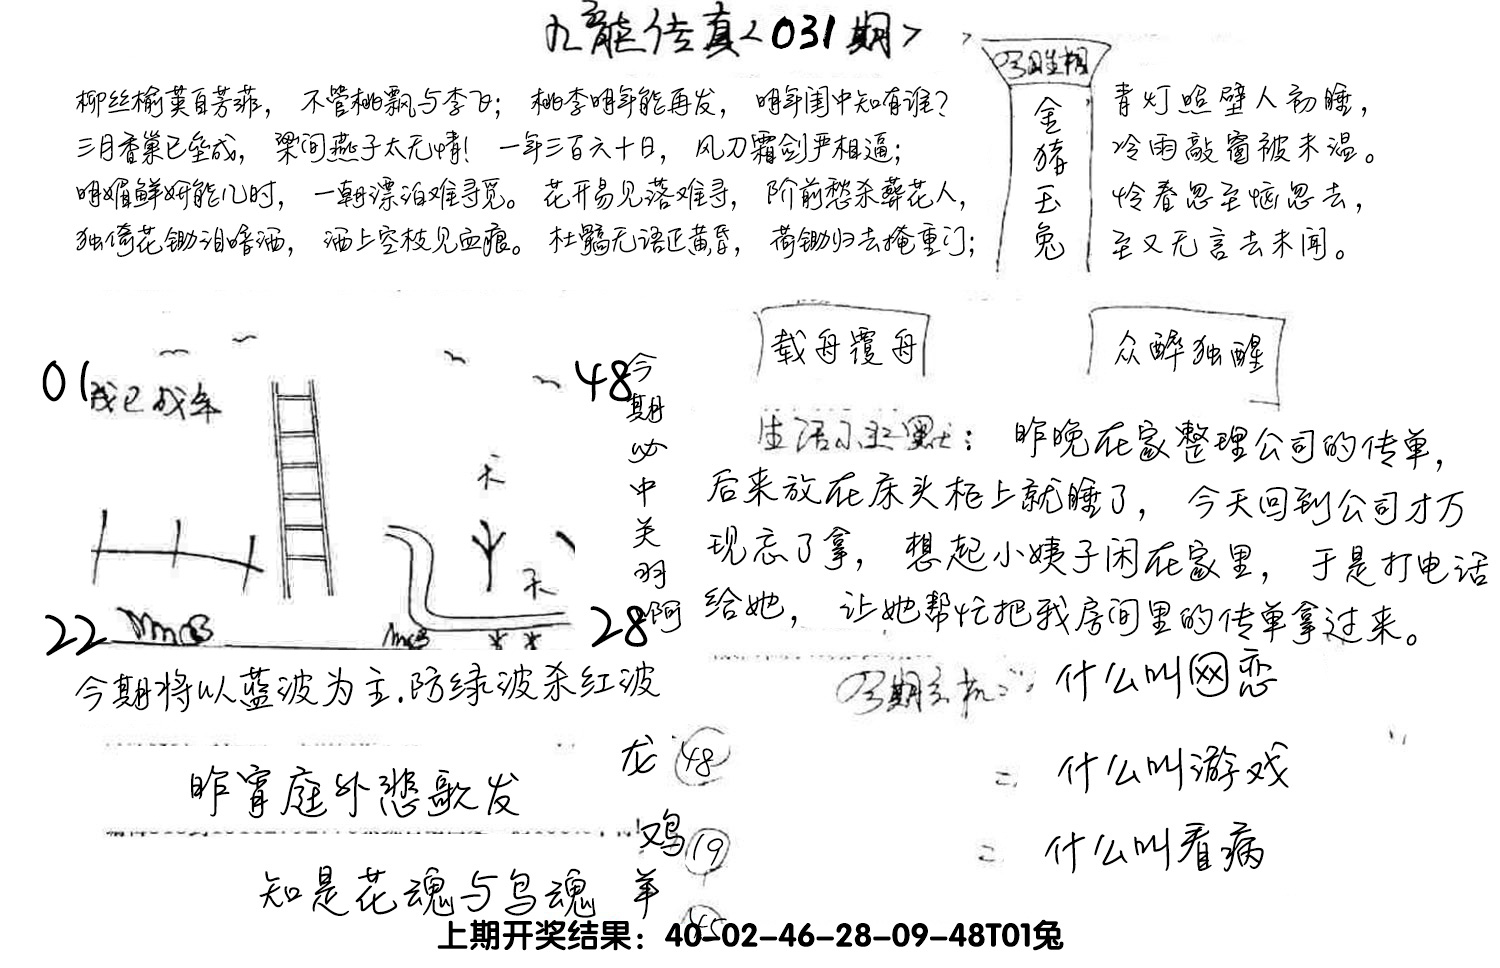 九龙传真<031期>
柳丝榆荚自芳菲， 不管桃飘与李飞； 桃李明年能再发， 明年闺中知有谁？
三月香巢已垒成， 梁间燕子太无情！ 一年三百六十日， 风刀霜剑严相逼；
明媚鲜妍能几时， 一朝漂泊难寻觅。 花开易见落难寻， 阶前愁杀葬花人，
独倚花锄泪暗洒， 洒上空枝见血痕。 杜鹃无语正黄昏， 荷锄归去掩重门；
今日生相
金猪玉兔
青灯照壁人初睡，
冷雨敲窗被未温。
怜春忽至恼忽去，
至又无言去未闻。
载舟覆舟
众醉独醒
01
我已成年
48
天
天
22
28
今期必中关羽啊
生活小幽默： 昨晚在家整理公司的传单，
后来放在床头柜上就睡了， 今天回到公司才万
现忘了拿， 想起小姨子闲在家里， 于是打电话
给她， 让她帮忙把我房间里的传单拿过来。
今期将以蓝波为主.防绿波杀红波
今期玄机: 什么叫网恋
二 什么叫游戏
二 什么叫看病
昨宵庭外悲歌发
知是花魂与鸟魂
龙 48
鸡 19
羊 45
上期开奖结果：40-02-46-28-09-48T01兔